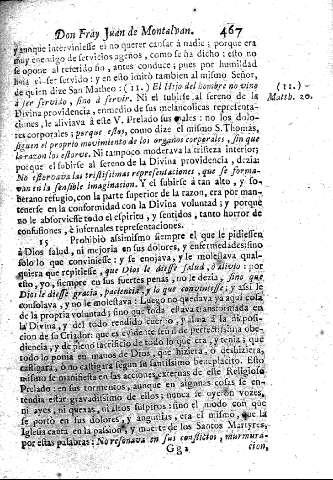 Don Fray Juan de Montalvan. 467
y aunque interviniesse el no querer cansar à nadie; porque era
muy enemigo de servicios agenos, como se ha dicho: esto no
se opone al referido fin, antes conduce; pues por humildad
huìa el ser servido: y en esto imitò tambien al mismo Señor,
de quien dize San Matheo: (11.) El Hijo del hombre no vino
à ser servido, sino à servir. Ni el subirse al sereno de la
Divina providencia, en medio de sus melancolicas representaciones, le aliviava à este V. Prelado sus males: no los dolores
corporales; porque estos, como dize el mismo S. Thomas,
siguen el proprio movimiento de los organos corporales, sin que
lo razon los estorve. Ni tampoco moderava la tristeza interior;
porque el subirse al sereno de la Divina providencia, dezia:
No estorvava las tristissimas representaciones, que se formavan en la sensible imaginacion. Y el subirse à tan alto, y soberano refugio, con la parte superior de la razon, era por mantenerse en la conformidad con la Divina voluntad; y porque
no le absorviesse todo el espiritu, y sentidos, tanto horror de
confusiones, è infernales representaciones.
15 Prohibiò assimismo siempre el que le pidiessen
à Dios salud, ni mejoria en sus dolores, y enfermedades; sino
solo lo que conviniesse: y se enojava, y le molestava qualquiera que repitiesse, que Dios le diesse salud, ò alivio: por
esto, yo, siempre en sus fuertes penas, no le dezia, sino que
Dios le diesse gracia, paciencia, y lo que conviniesse; y assi le
consolava, y no le molestava: Luego no quedava ya aqui cosa
de la propria voluntad; sino que toda estava transformada en
la Divina, y del todo rendido cuerpo, y alma à la disposicion de su Criador: que es evidente señal de perfectissima obediencia, y de pleno sacrificio de todo lo que era, y tenia; que
todo lo ponia en manos de Dios, que hiziera, ò deshiziera,
castigara, ò no castigara segun su santissimo beneplacito. Esto
mismo se manifiesta en las acciones externas de este Religioso
Prelado: en sus tormentos, aunque en algunas cosas se entendia estar gravadissimo de ellos; nunca se oyeron vozes,
ni ayes, ni quexas, ni altos suspiros; sino el modo con que
se portò en sus dolores, y angustias, era el mismo, que la
Iglesia canta en la passion, y muerte de los Santos Martyres,
por estas palabras: No resonava en sus conflictos, murmura-
Gg2 cion,
(11.)
Matth. 20.